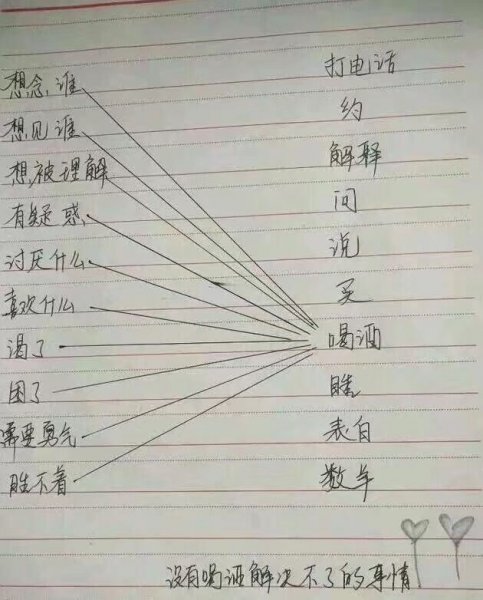 想念谁 打电话
想见谁 约
想被理解 解释
有疑惑 问
讨厌什么 说
喜欢什么 买
渴了 喝酒
困了 睡
需要勇气 表白
睡不着 数羊
没有喝酒解决不了的事情